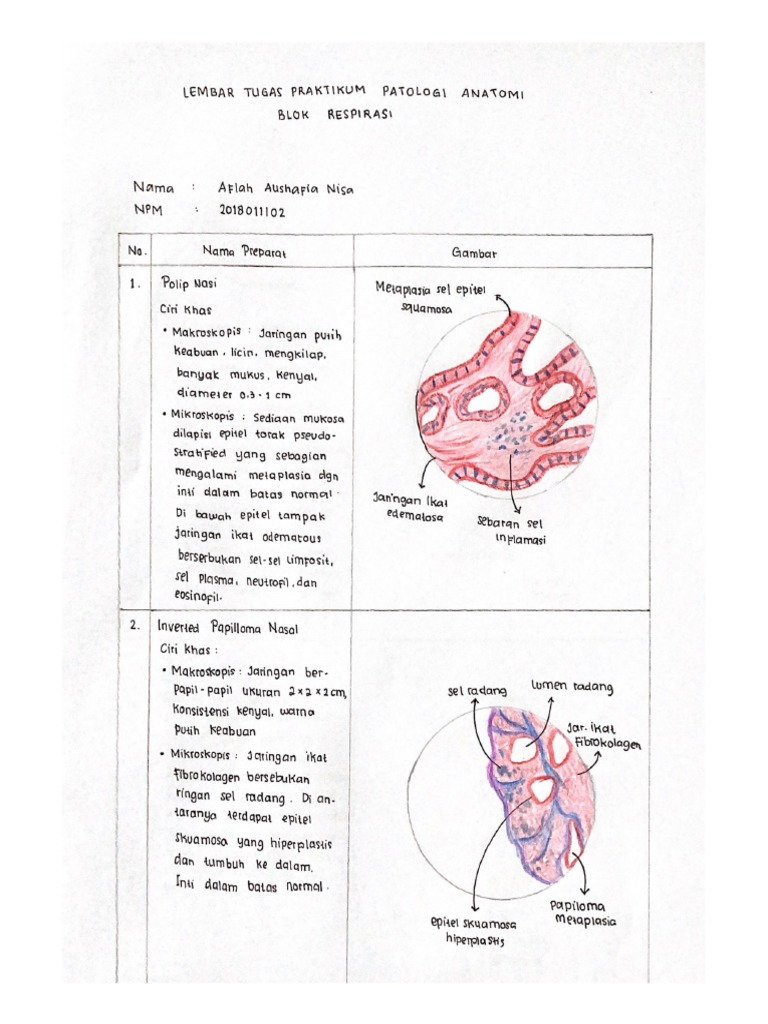 LEMBAR TUGAS PRAKTIKUM PATOLOGI ANATOMI
BLOK RESPIRASI
Nama : Aflah Aushafia Nisa
NPM : 2018011102
No. Nama Preparat Gambar
1. Polip Nasi
Ciri Khas
• Makroskopis : Jaringan putih
keabuan, licin, mengkilap,
banyak mukus, kenyal,
diameter 0.3-1 cm
• Mikroskopis : Sediaan mukosa
dilapisi epitel torak pseudo-
stratified yang sebagian
mengalami metaplasia dgn
inti dalam batas normal.
Di bawah epitel tampak
jaringan ikat odematous
berserbukan sel-sel limfosit,
sel plasma, neutrofil, dan
eosinofil.
Metaplasia sel epitel
squamosa
Jaringan ikat
edematosa
Sebaran sel
inflamasi
2. Inverted Papilloma Nasal
Ciri Khas :
• Makroskopis : Jaringan ber-
papil-papil ukuran 2x2x2cm,
konsistensi kenyal, warna
putih keabuan
• Mikroskopis : Jaringan ikat
fibrokolagen bersebukan
ringan sel radang. Di an-
taranya terdapat epitel
skuamosa yang hiperplastis
dan tumbuh ke dalam.
Inti dalam batas normal.
sel radang
lumen radang
Jar. ikat
Fibrokolagen
epitel skuamosa
hiperplastis
papiloma
metaplasia